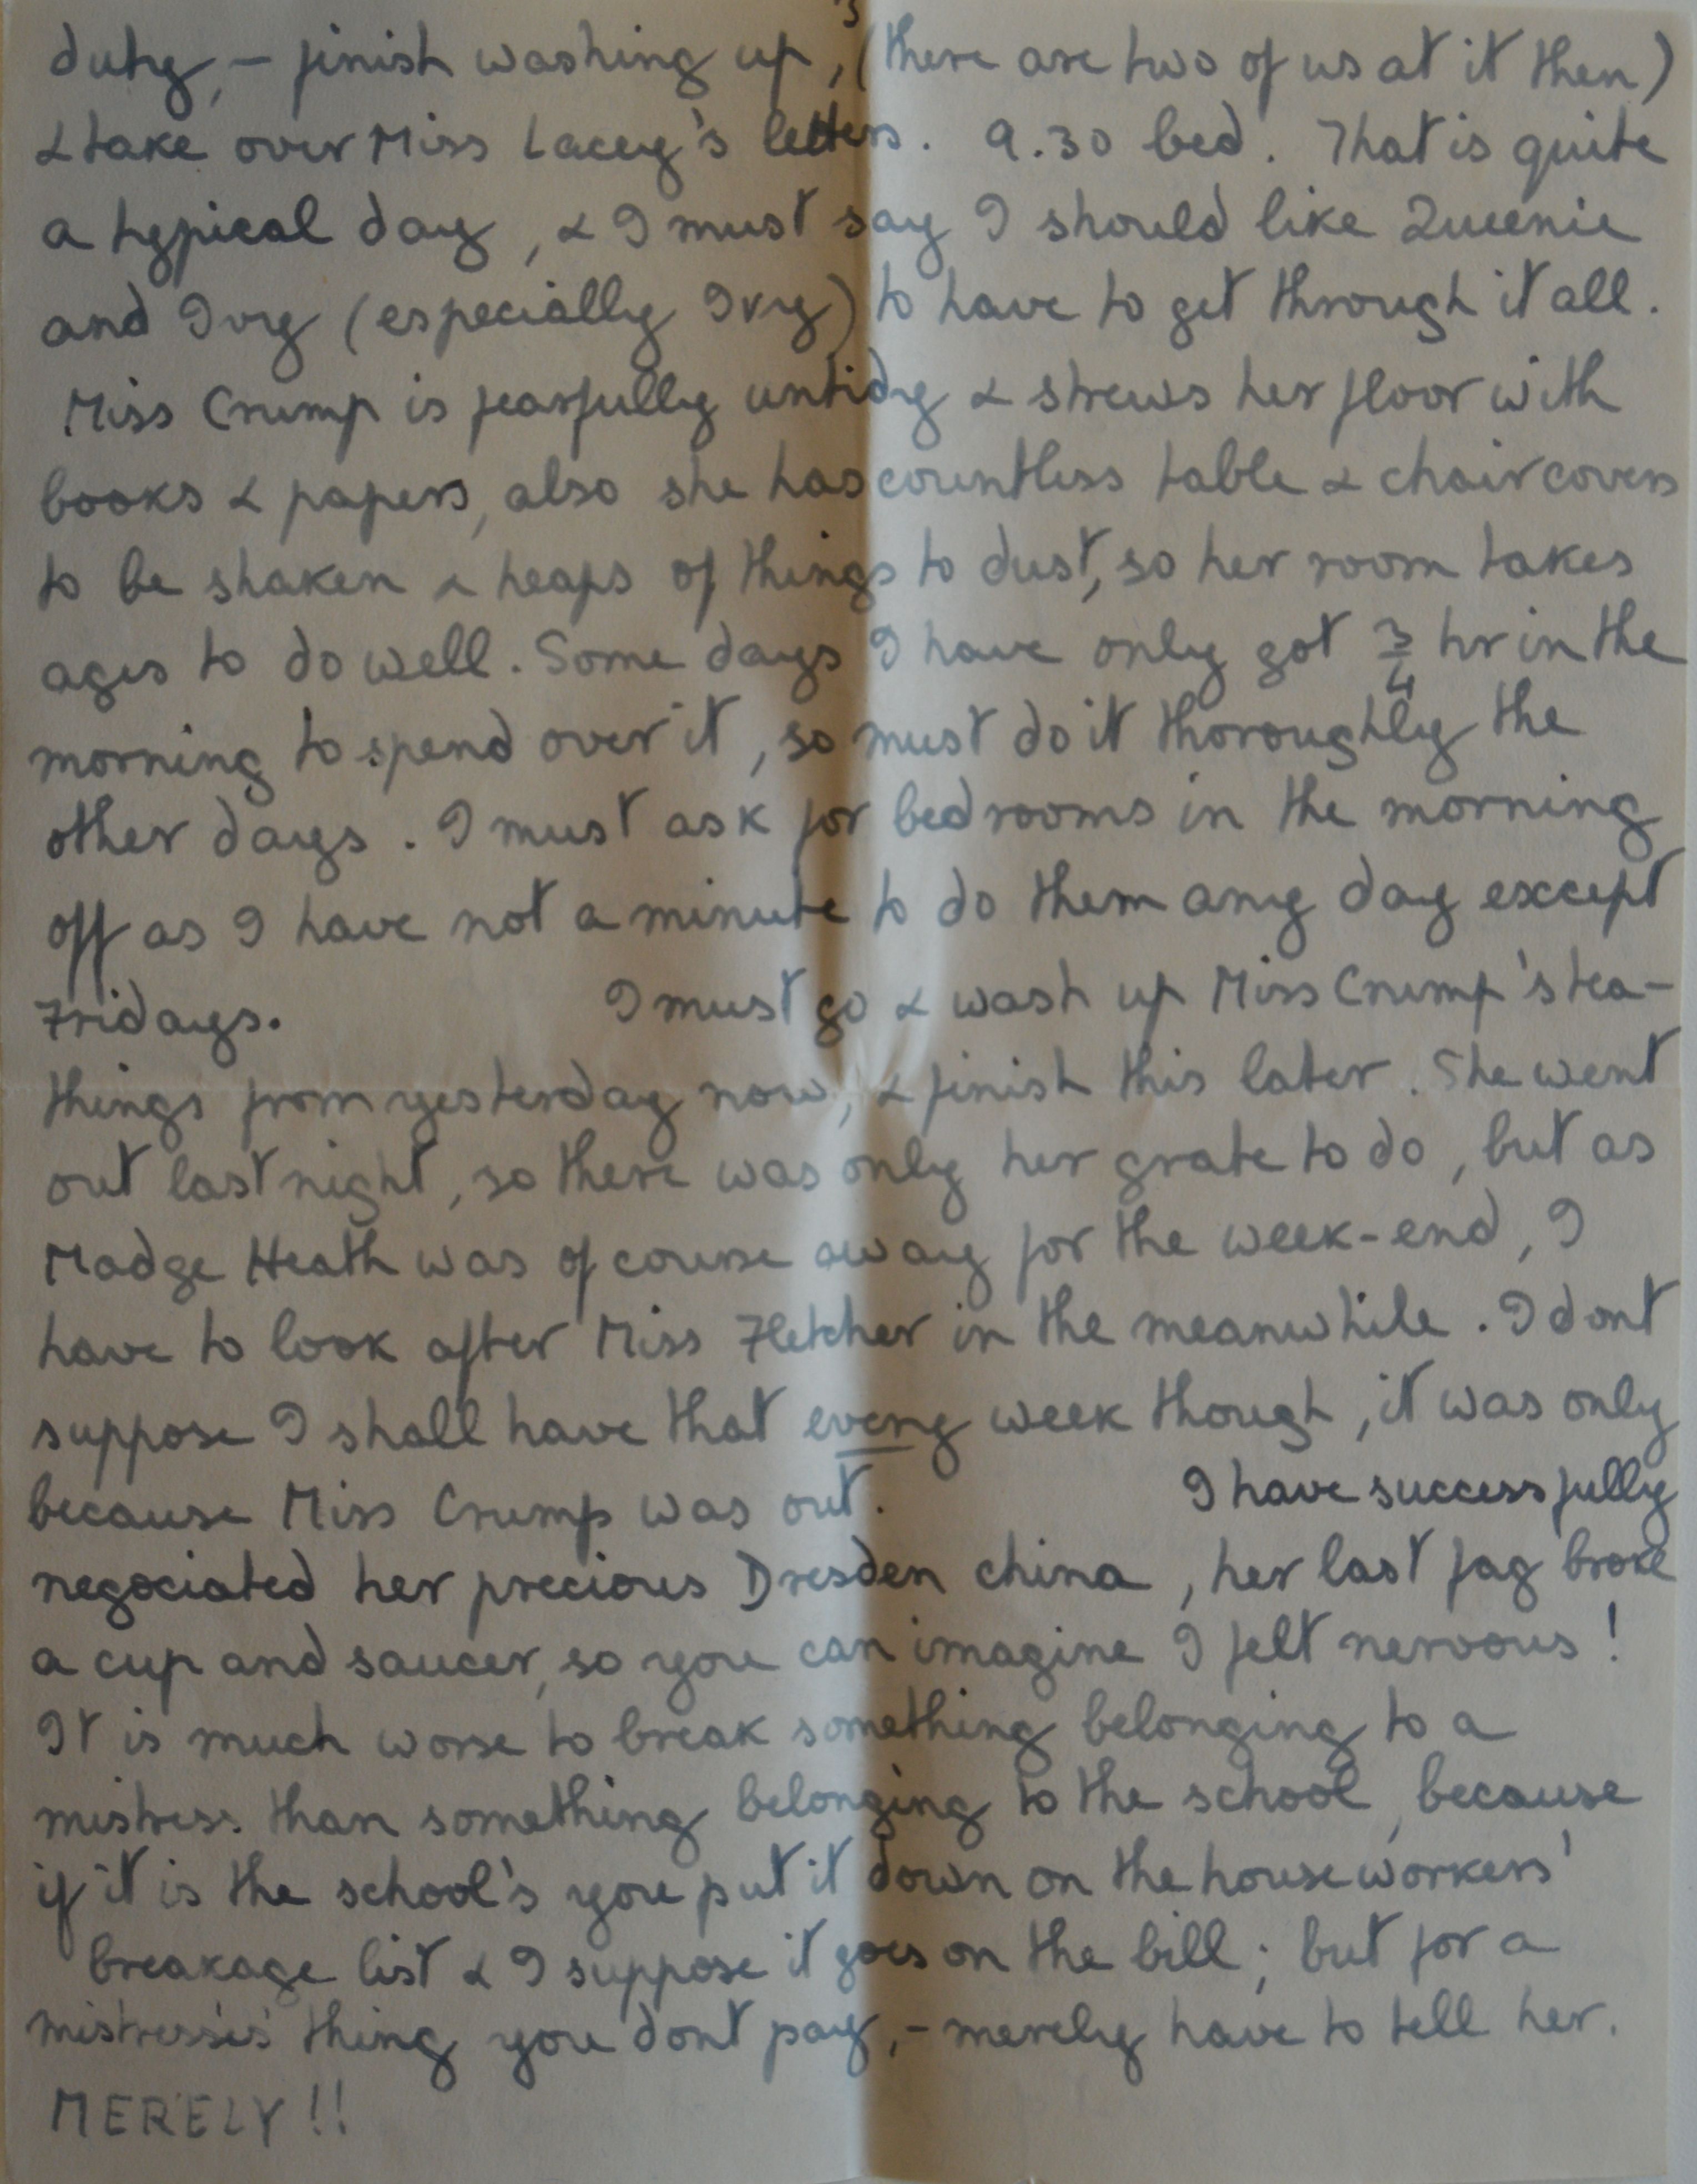 duty, – finish washing up, (there are two of us at it then)
& take over Miss Lacey's letters. 9.30 bed. That is quite
a typical day, & I must say I should like Queenie
and Ivy (especially Ivy) to have to get through it all.
Miss Crump is fearfully untidy & strews her floor with
books & papers, also she has countless table & chair covers
to be shaken & heaps of things to dust, so her room takes
ages to do well. Some days I have only got 3/4 hr in the
morning to spend over it, so must do it thoroughly the
other days. I must ask for bedrooms in the morning
off as I have not a minute to do them any day except
Fridays. I must go & wash up Miss Crump's tea-
things from yesterday now, & finish this later. She went
out last night, so there was only her grate to do, but as
Madge Heath was of course away for the week-end, I
have to look after Miss Fletcher in the meanwhile. I dont
suppose I shall have that every week though, it was only
because Miss Crump was out. I have successfully
negociated her precious Dresden china, her last fag broke
a cup and saucer, so you can imagine I felt nervous!
It is much worse to break something belonging to a
mistress than something belonging to the school, because
if it is the school's you put it down on the houseworkers'
breakage list & I suppose it goes on the bill; but for a
mistress's thing you dont pay, – merely have to tell her.
MERELY!!